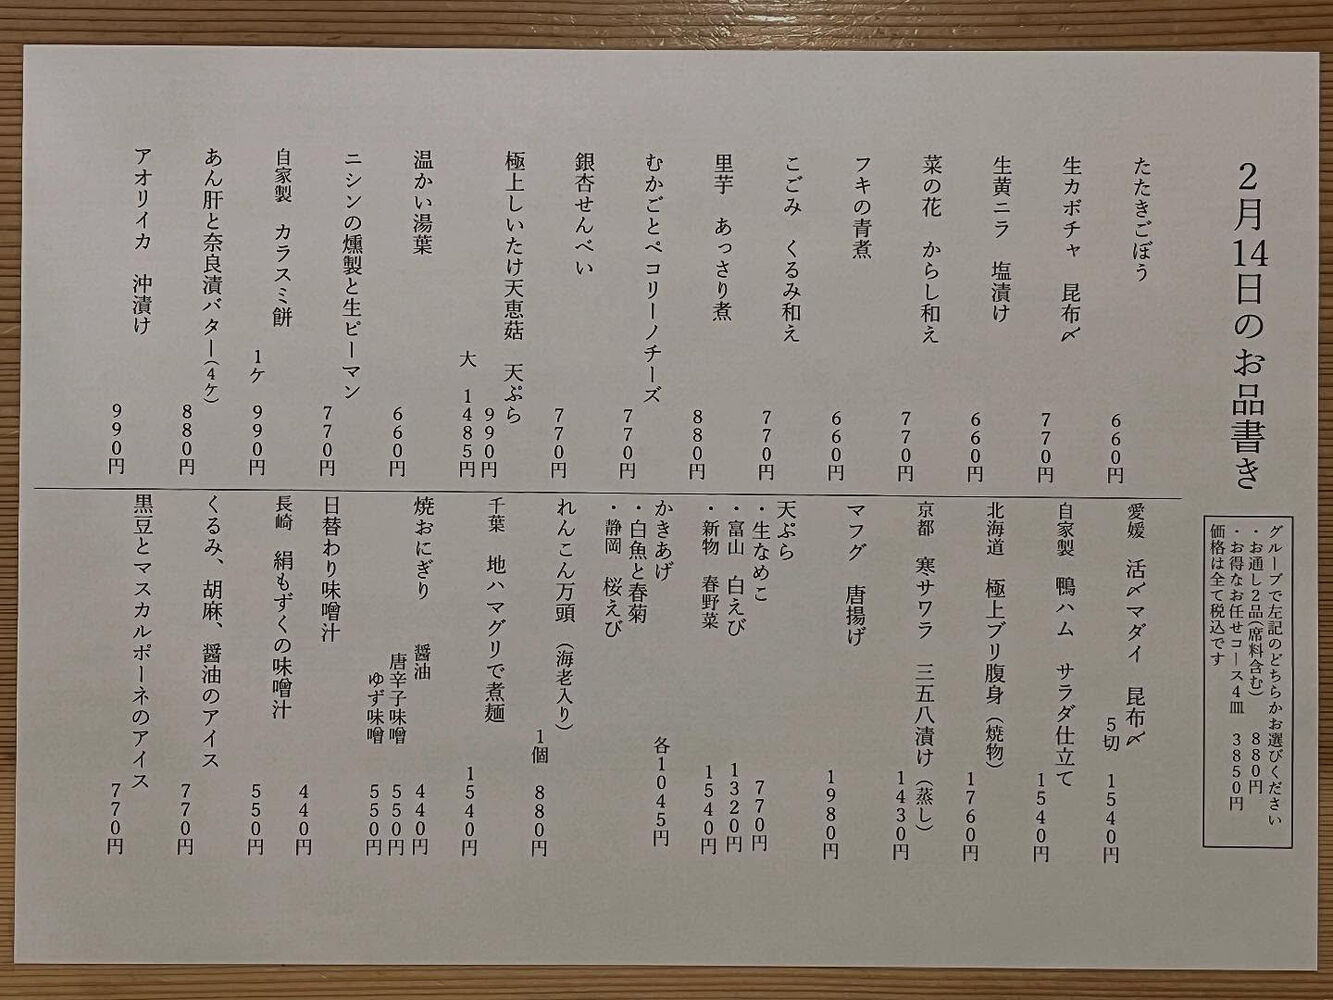 2月14日のお品書き
グループで左記のどちらかお選びください
・お通し2品(席料含む) 880円
・お得なお任せコース4皿 3850円
価格は全て税込です
たたきごぼう 660円
生カボチャ 昆布〆 770円
生黄ニラ 塩漬け 660円
菜の花 からし和え 770円
フキの青煮 660円
こごみ くるみ和え 770円
里芋 あっさり煮 880円
むかごとペコリーノチーズ 770円
銀杏せんべい 770円
極上しいたけ天恵菇 天ぷら 990円
大 1485円
温かい湯葉 660円
ニシンの燻製と生ピーマン 770円
自家製 カラスミ餅 1ケ 990円
あん肝と奈良漬バター(4ケ) 880円
アオリイカ 沖漬け 990円
愛媛 活〆マダイ 昆布〆 5切 1540円
自家製 鴨ハム サラダ仕立て 1540円
北海道 極上ブリ腹身(焼物) 1760円
京都 寒サワラ 三五八漬け(蒸し) 1430円
マフグ 唐揚げ 1980円
天ぷら
・生なめこ 770円
・富山 白えび 1320円
・新物 春野菜 1540円
かきあげ 各1045円
・白魚と春菊
・静岡 桜えび
れんこん万頭(海老入り) 1個 880円
千葉 地ハマグリで煮麺 1540円
焼おにぎり 醤油 440円
唐辛子味噌 550円
ゆず味噌 550円
日替わり味噌汁 440円
長崎 絹もずくの味噌汁 550円
くるみ、胡麻、醤油のアイス 770円
黒豆とマスカルポーネのアイス 770円